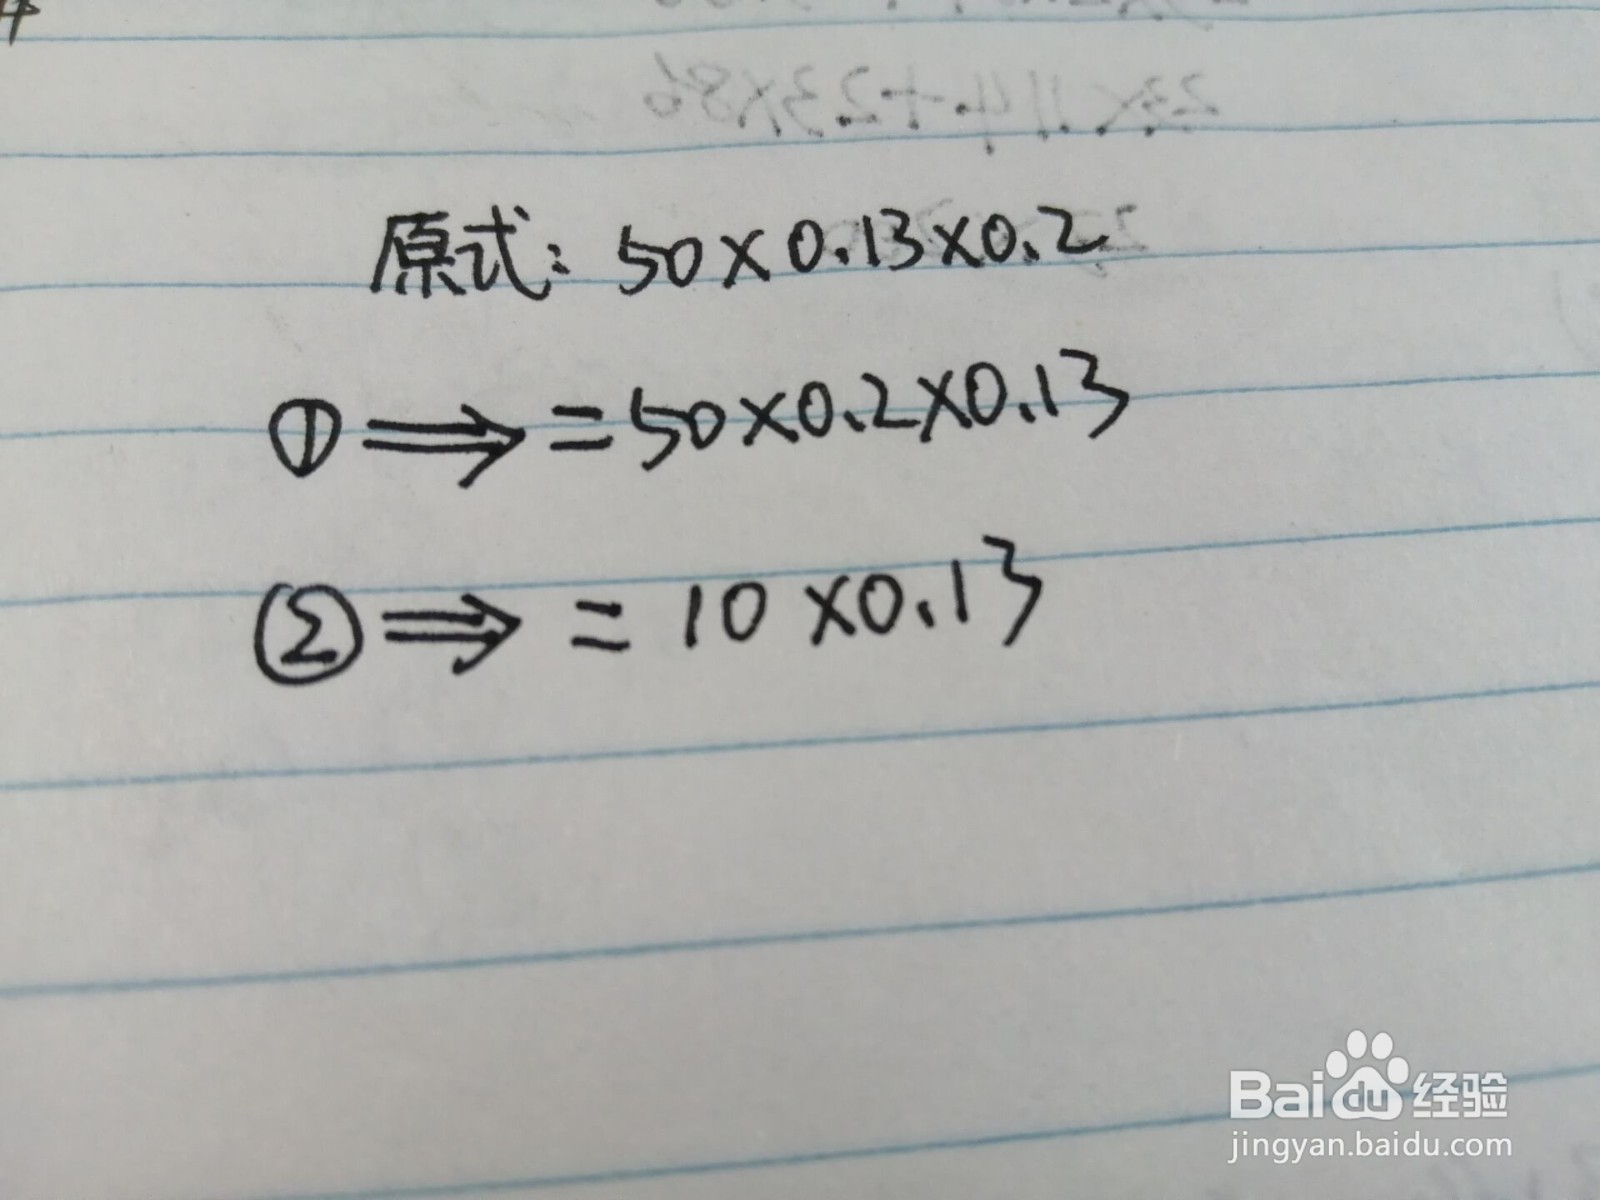 原式：50×0.13×0.2
① ⇒ =50×0.2×0.13
② ⇒ =10×0.13
Baidu 经验
jingyan.baidu.com